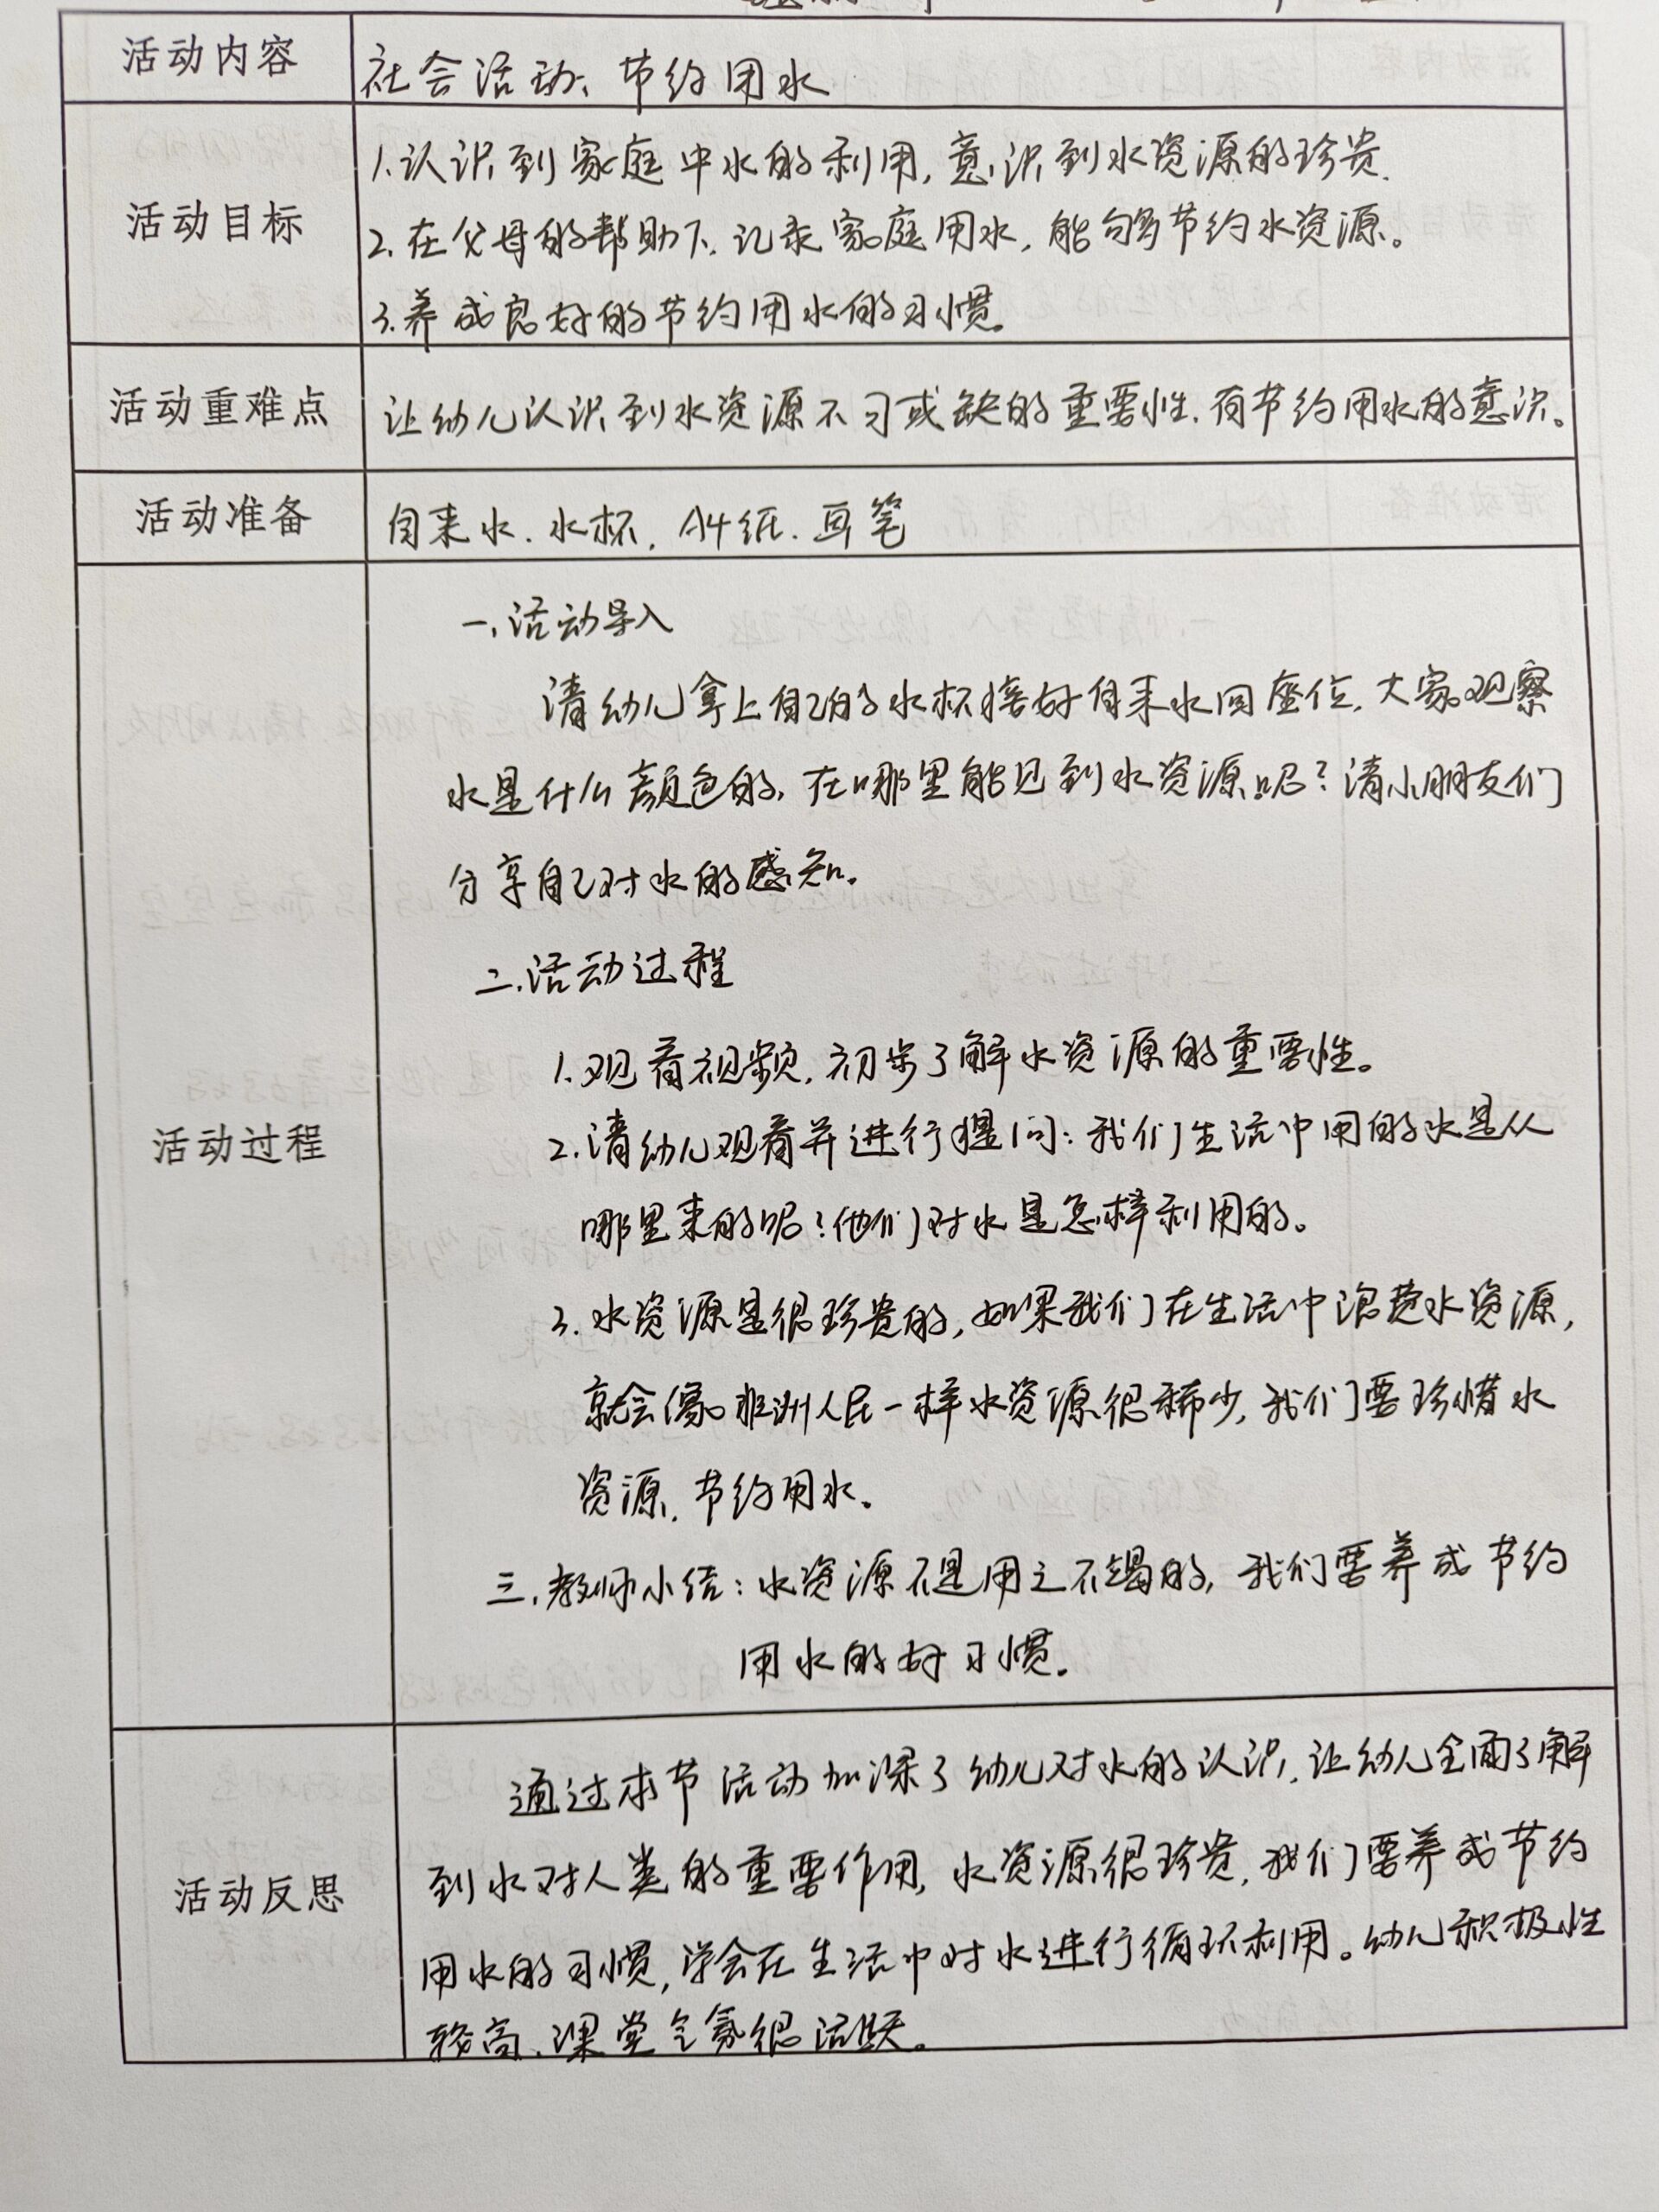 活动内容
社会活动：节约用水
活动目标
1.认识到家庭中水的利用，意识到水资源的珍贵.
2.在父母的帮助下.记录家庭用水，能够节约水资源。
3.养成良好的节约用水的习惯。
活动重难点
让幼儿认识到水资源不可或缺的重要性.有节约用水的意识。
活动准备
自来水.水杯.A4纸.画笔
活动过程
一.活动导入
请幼儿拿上自己的水杯接好自来水回座位.大家观察
水是什么颜色的，在哪里能见到水资源呢？请小朋友们
分享自己对水的感知。
二.活动过程
1.观看视频，初步了解水资源的重要性。
2.请幼儿观看并进行提问：我们生活中用的水是从
哪里来的呢？他们对水是怎样利用的。
3.水资源是很珍贵的，如果我们在生活中浪费水资源，
就会像非洲人民一样水资源很稀少，我们要珍惜水
资源，节约用水。
三.教师小结：水资源不是用之不竭的，我们要养成节约
用水的好习惯。
活动反思
通过本节活动加深了幼儿对水的认识，让幼儿全面了解
到水对人类的重要作用，水资源很珍贵，我们要养成节约
用水的习惯，学会在生活中对水进行循环利用。幼儿积极性
较高、课堂气氛很活跃。